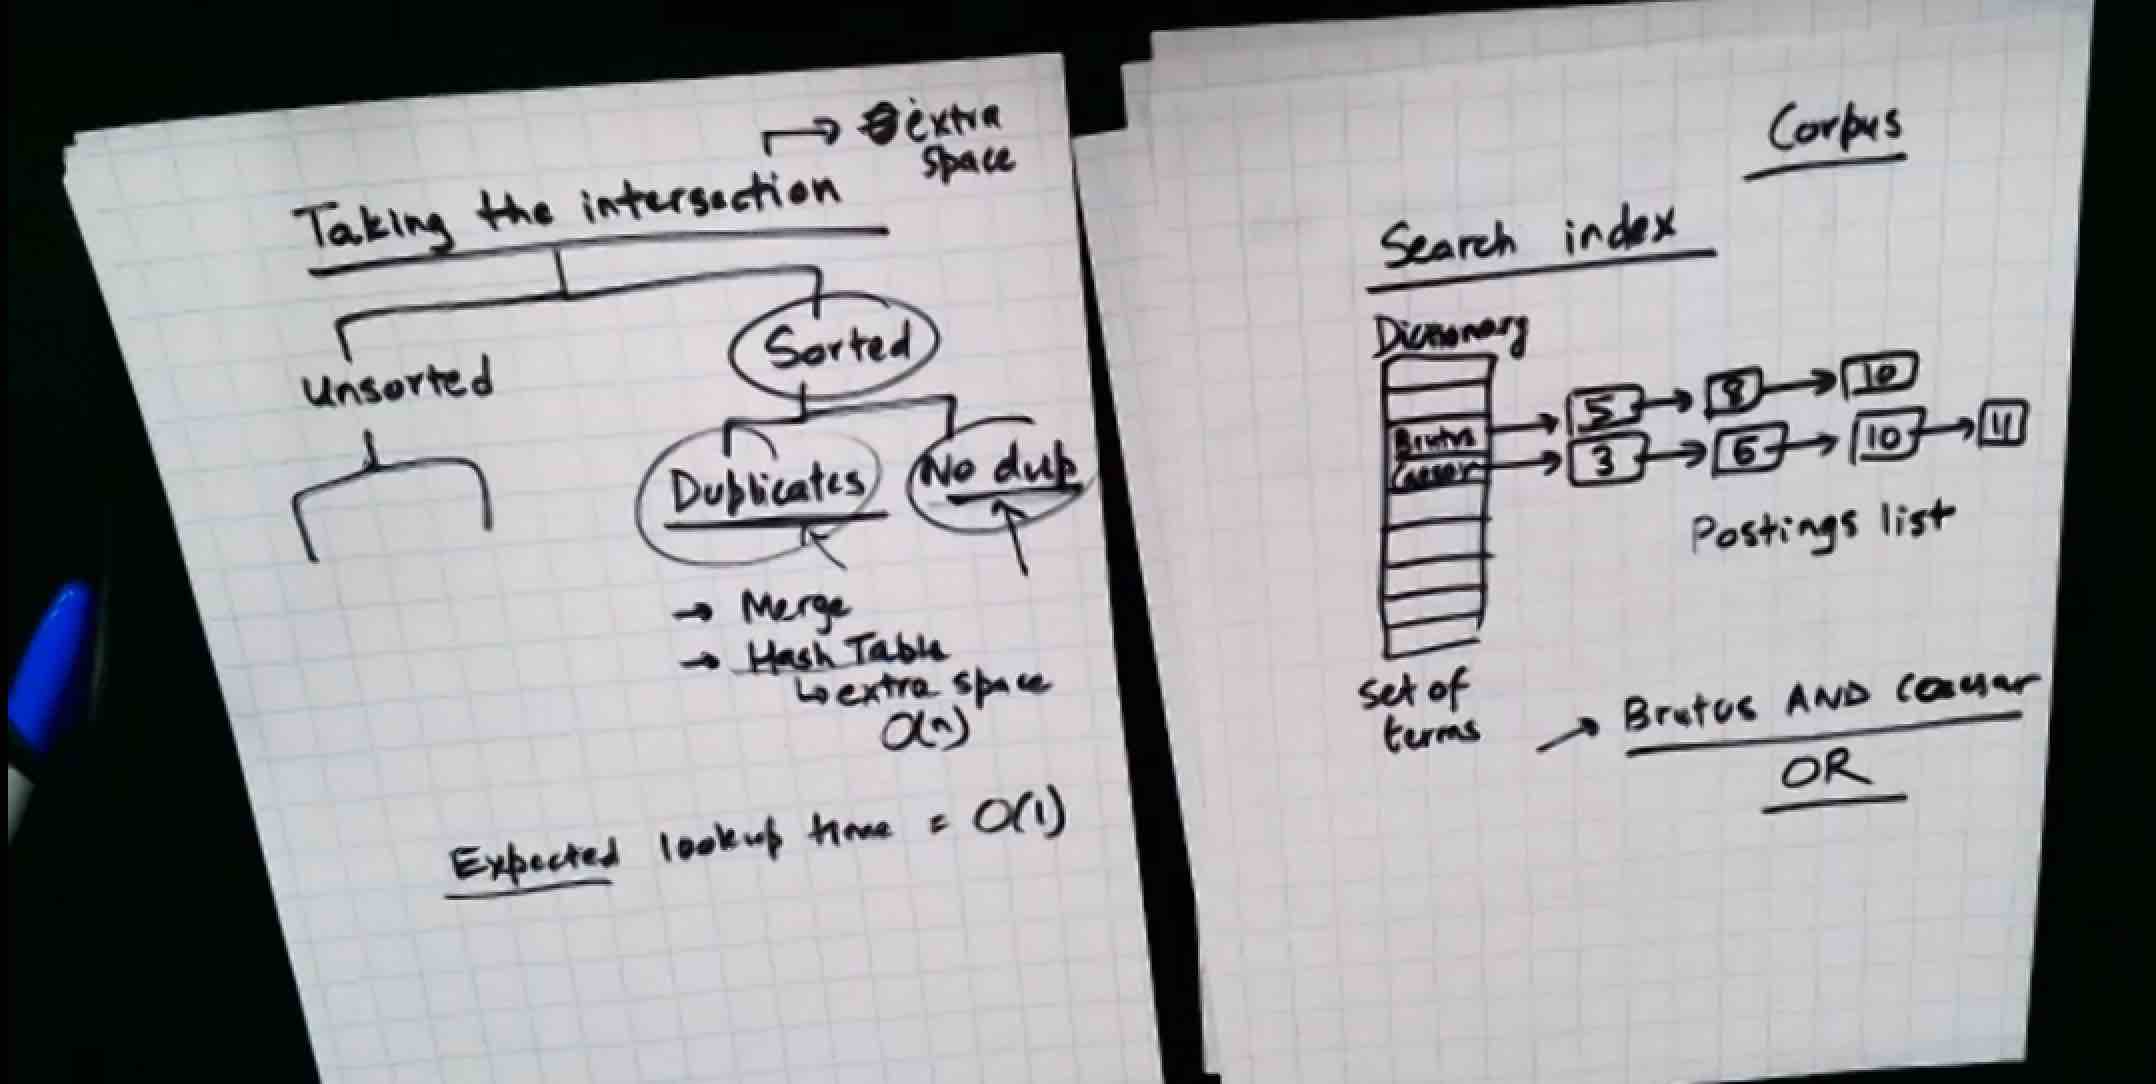 extra
space
Taking the intersection
Unsorted
Sorted
Duplicates
No dup
→ Merge
→ Hash Table
↳ extra space
O(n)
Expected lookup time = O(1)
Corpus
Search index
Dictionary
Brutus → 5 → 8 → 10
Caesar → 3 → 6 → 10 → 11
Postings list
set of
terms
→ Brutus AND Caesar
OR